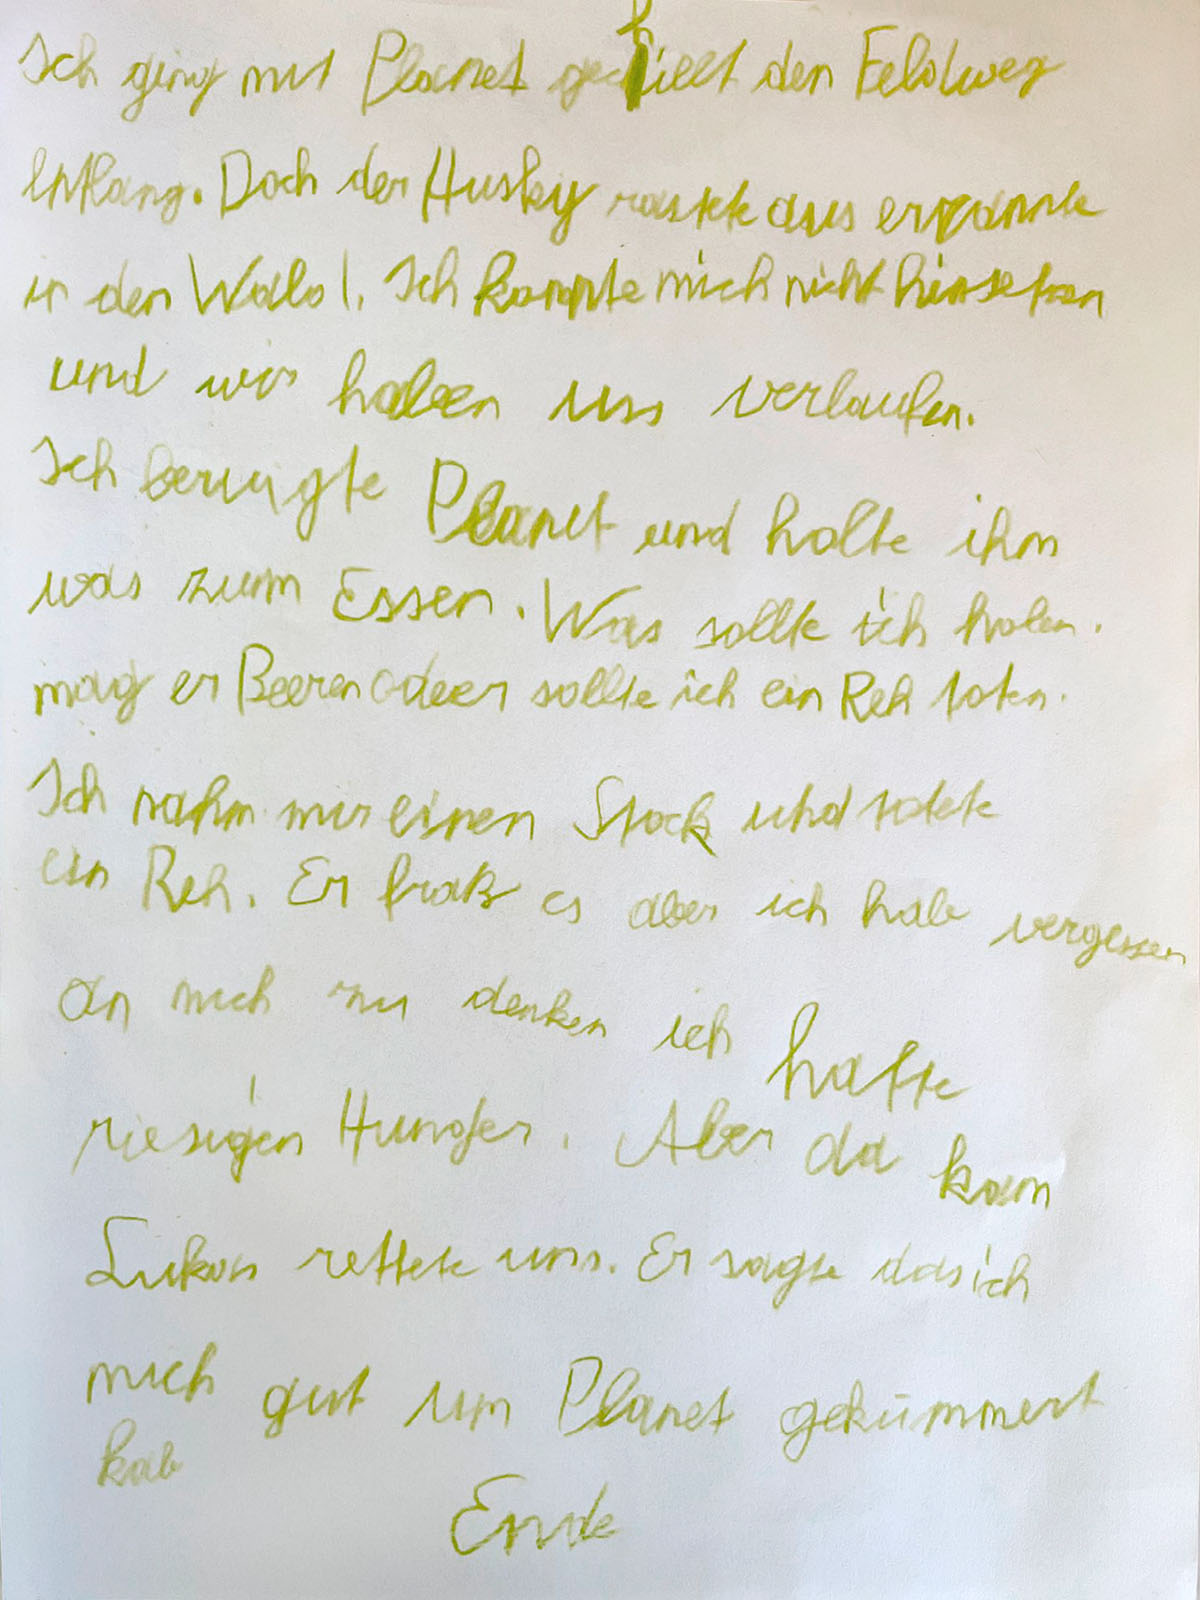 Ich ging mit Planet gechillt den Feldweg
entlang. Doch der Husky rastete aus er rannte
in den Wald. Ich konnte mich nicht hinsetzen
und wir haben uns verlaufen.
Ich beruigte Planet und holte ihm
was zum Essen. Was sollte ich holen.
mag er Beeren odeer sollte ich ein Reh toten.
Ich nahm mir einen Stock und totete
ein Reh. Er fraß es aber ich hab vergessen
an mich zu denken ich hatte
riesigen Hunger. Aber da kam
Lukas rettete uns. Er sagte das ich
mich gut um Planet gekümmert
hab
Ende